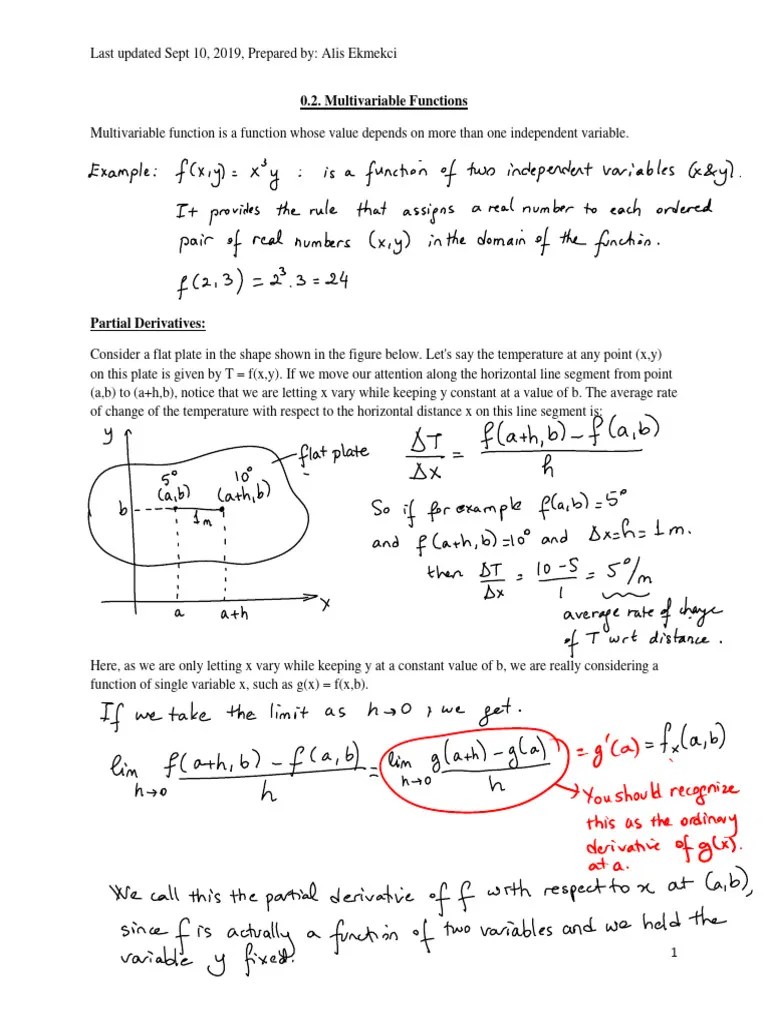 Last updated Sept 10, 2019, Prepared by: Alis Ekmekci
0.2. Multivariable Functions
Multivariable function is a function whose value depends on more than one independent variable.
Example: f(x,y) = x³y : is a function of two independent variables (x&y).
It provides the rule that assigns a real number to each ordered
pair of real numbers (x,y) in the domain of the function.
f(2,3) = 2³.3 = 24
Partial Derivatives:
Consider a flat plate in the shape shown in the figure below. Let's say the temperature at any point (x,y)
on this plate is given by T = f(x,y). If we move our attention along the horizontal line segment from point
(a,b) to (a+h,b), notice that we are letting x vary while keeping y constant at a value of b. The average rate
of change of the temperature with respect to the horizontal distance x on this line segment is:
y
flat plate
5° 10°
(a,b) (a+h,b)
b
1m
a a+h x
ΔT/Δx = (f(a+h,b) – f(a,b))/h
So if for example f(a,b)=5°
and f(a+h,b)=10° and Δx=h=1m.
then ΔT/Δx = (10-5)/1 = 5°/m
average rate of change
of T wrt distance.
Here, as we are only letting x vary while keeping y at a constant value of b, we are really considering a
function of single variable x, such as g(x) = f(x,b).
If we take the limit as h→0, we get.
lim h→0 (f(a+h,b) – f(a,b))/h = lim h→0 (g(a+h) – g(a))/h = g'(a) = fx(a,b)
You should recognize
this as the ordinary
derivative of g(x).
at a.
We call this the partial derivative of f with respect to x at (a,b),
since f is actually a function of two variables and we held the
variable y fixed.
1